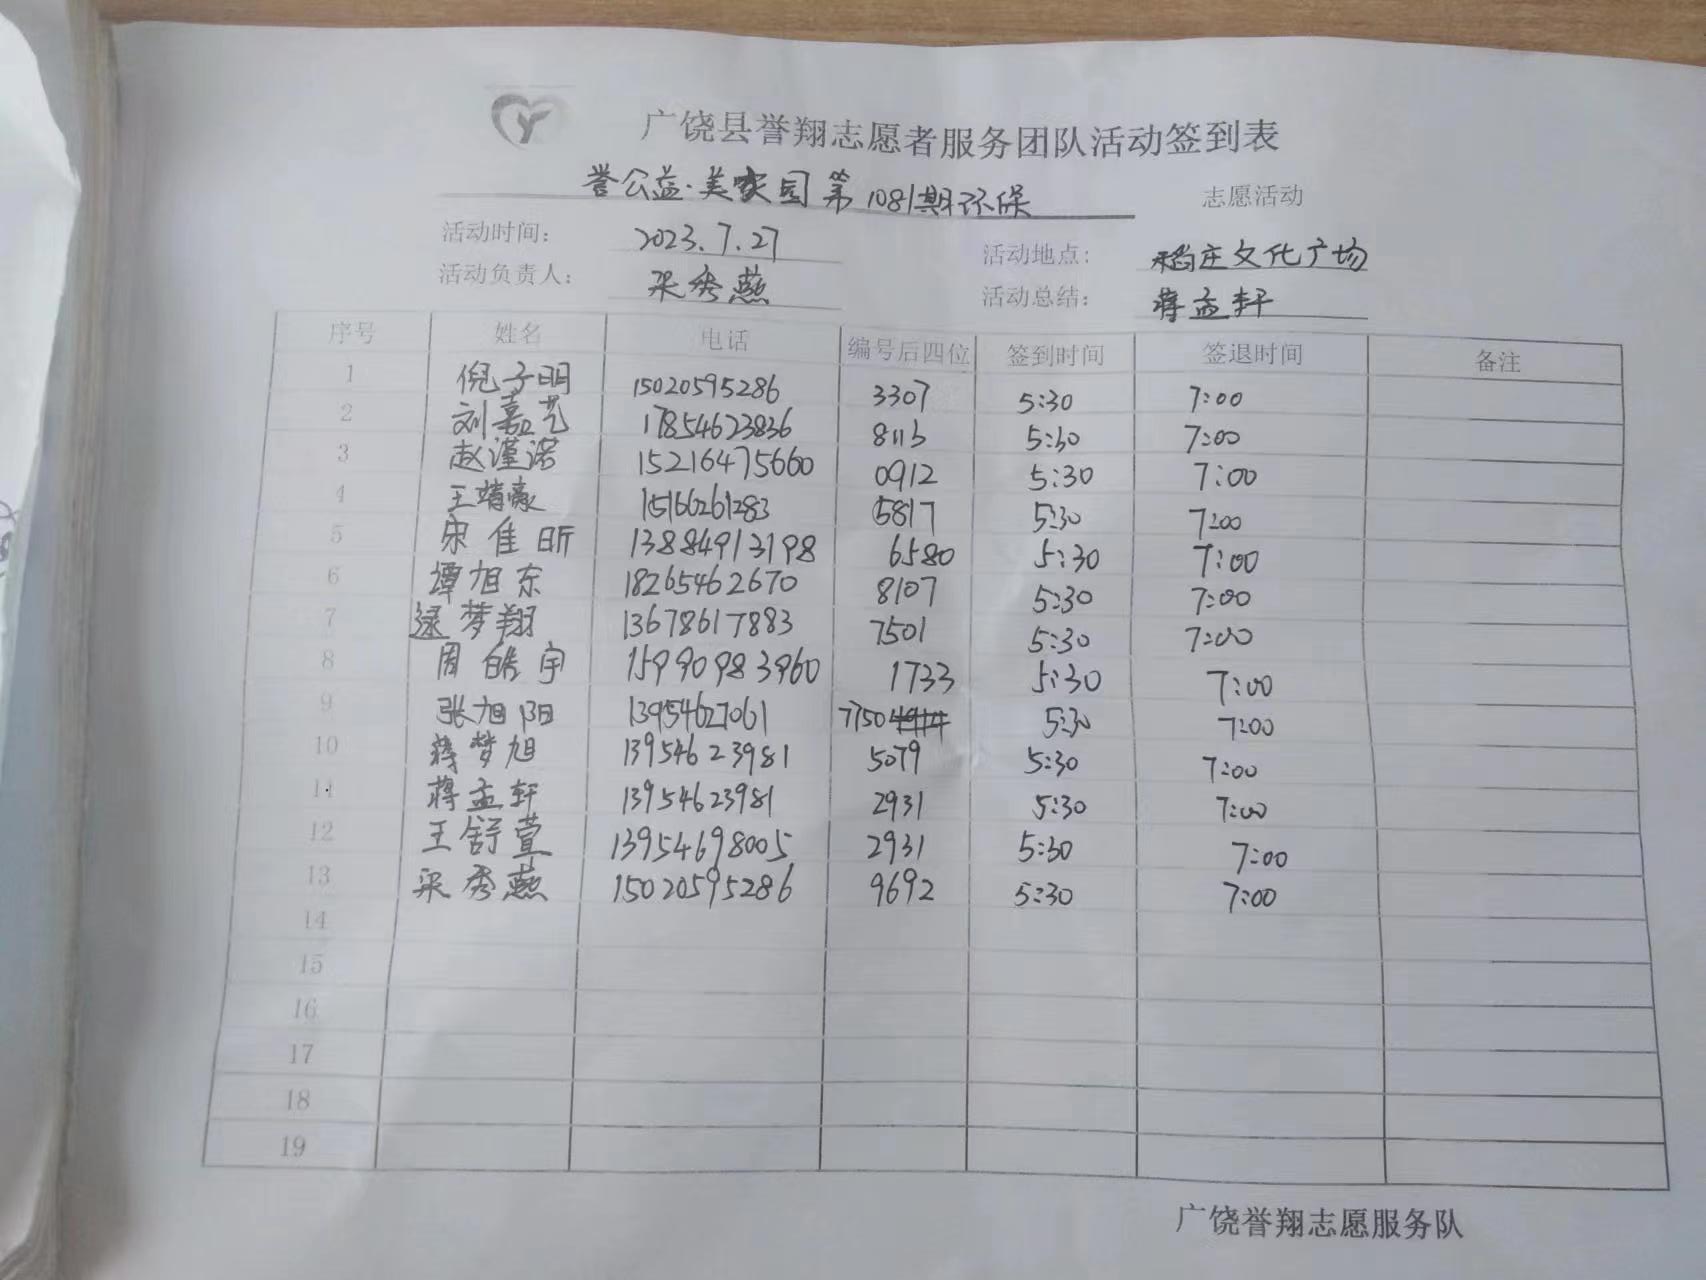 广饶县誉翔志愿者服务团队活动签到表
誉公益·美家园第1081期环保 志愿活动
活动时间： 2023.7.27 活动地点： 稻庄文化广场
活动负责人： 梁秀燕 活动总结： 蒋孟轩
序号 姓名 电话 编号后四位 签到时间 签退时间 备注
1 倪子明 15020595286 3307 5:30 7:00
2 刘嘉艺 17854623836 8113 5:30 7:00
3 赵谨诺 15216475660 0912 5:30 7:00
4 王靖豪 15166261283 5817 5:30 7:00
5 宋佳昕 13884913198 6580 5:30 7:00
6 谭旭东 18265462670 8107 5:30 7:00
7 逯梦翔 13678617883 7501 5:30 7:00
8 周皓宇 15990983960 1733 5:30 7:00
9 张旭阳 13954627061 7750 5:30 7:00
10 蒋梦旭 13954623981 5079 5:30 7:00
11 蒋孟轩 13954623981 2931 5:30 7:00
12 王舒萱 13954698005 2931 5:30 7:00
13 梁秀燕 15020595286 9692 5:30 7:00
14
15
16
17
18
19
广饶誉翔志愿服务队